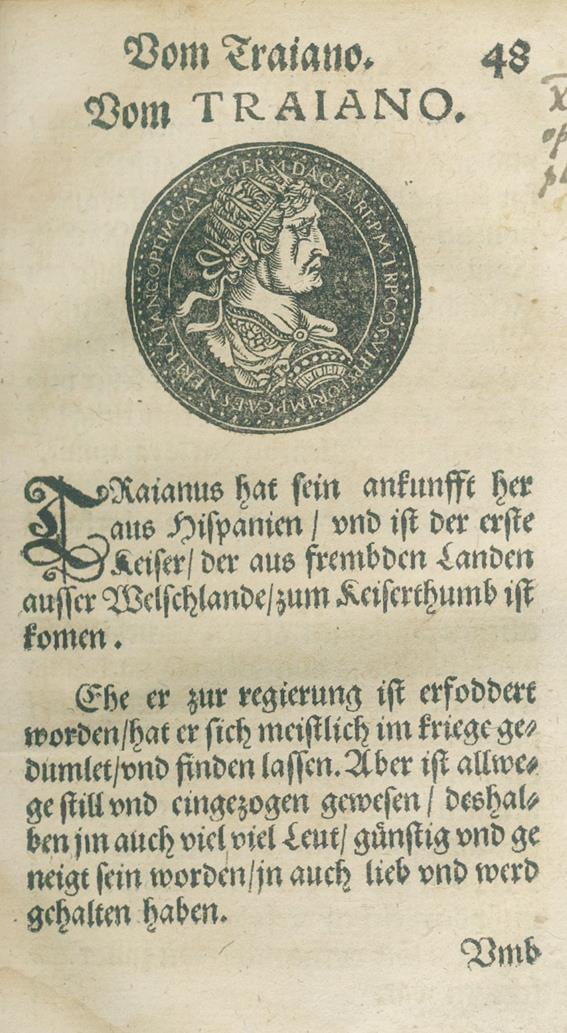 Vom Traiano. 48
Vom TRAIANO.
TRaianus hat sein ankunfft her
aus Hispanien / vnd ist der erste
Keiser/ der aus frembden Landen
ausser Welschlande/zum Keiserthumb ist
komen.
Ehe er zur regierung ist erfoddert
worden/hat er sich meistlich im kriege ge-
dumlet/vnd finden lassen. Aber ist allwe-
ge still vnd eingezogen gewesen / deshal-
ben jm auch viel viel Leut/ günstig vnd ge
neigt sein worden/jn auch lieb vnd werd
gehalten haben.
Vmb